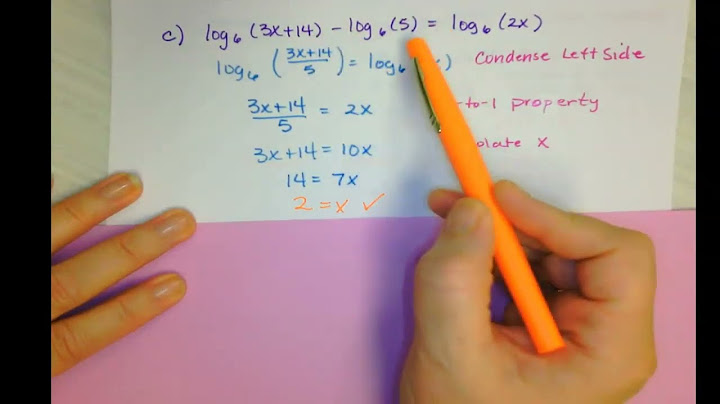 c) log₆(3x+14) - log₆(5) = log₆(2x)
log₆((3x+14)/5) = log₆ x) Condense Left Side
(3x+14)/5 = 2x -to-1 property
3x+14 = 10x olate x
14 = 7x
2 = x ✓